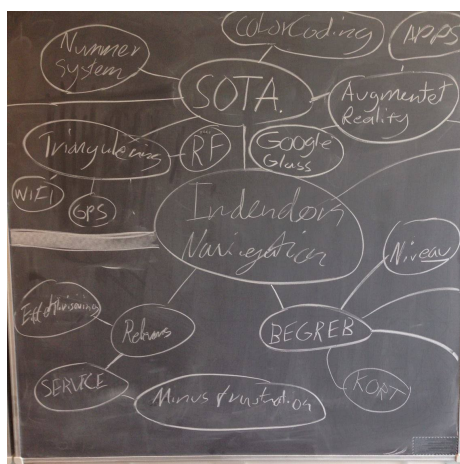 ColorCoding
APPS
Nummer
system
SOTA.
Augmentet
Reality
Triangulering
RF
Google
Glass
WIFI
GPS
Indendørs
Navigation
Niveau
Effektivisering
Relevans
BEGREB
SERVICE
KORT
Minus frustration